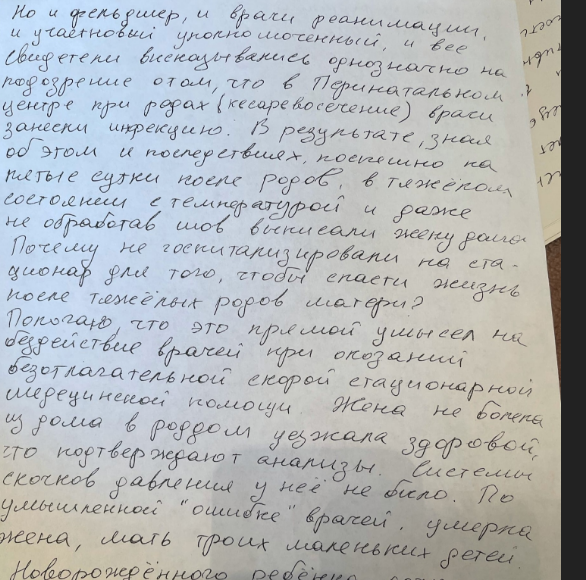 Но и фельдшер, и врачи реанимации,
и участковый уполномоченный, и все
свидетели высказывались однозначно на
подозрение отом, что в Перинатальном
центре при родах (кесаревосечение) врачи
занесли инфекцию. В результате, зная
об этом и последствиях, поспешно на
пятые сутки после родов, в тяжёлом
состоянии с температурой и даже
не обработав шов выписали жену домой.
Почему не госпитализировали на ста-
ционар для того, чтобы спасти жизнь
после тяжёлых родов матери?
Пологаю, что это прямой умысел на
бездействие врачей при оказании
безотлагательной скорой стационарной
медецинской помощи. Жена не болела
из дома в роддом уезжала здоровой,
что подтверждают анализы. Системы
скочков давления у неё не было. По
умышленной "ошибке" врачей, умерла
жена, мать троих маленьких детей.
Новорождённого ребёнка